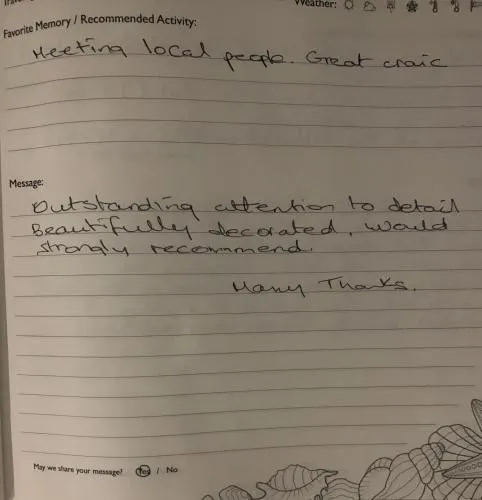 Weather:
Favorite Memory / Recommended Activity:
Meeting local people. Great craic
Message:
Outstanding attention to detail
Beautifully decorated, would
strongly recommend.
Many Thanks.
May we share your message? Yes / No